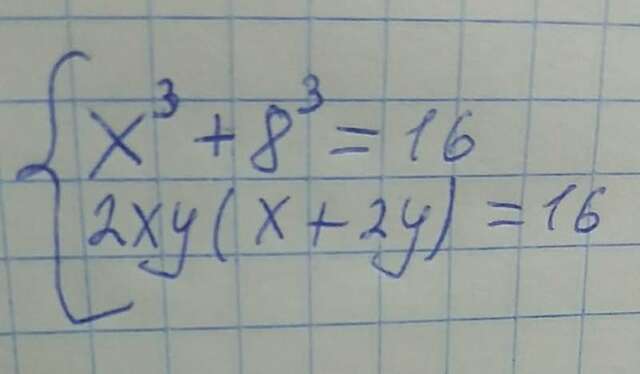 x³ + 8³ = 16
2xy(x + 2y) = 16